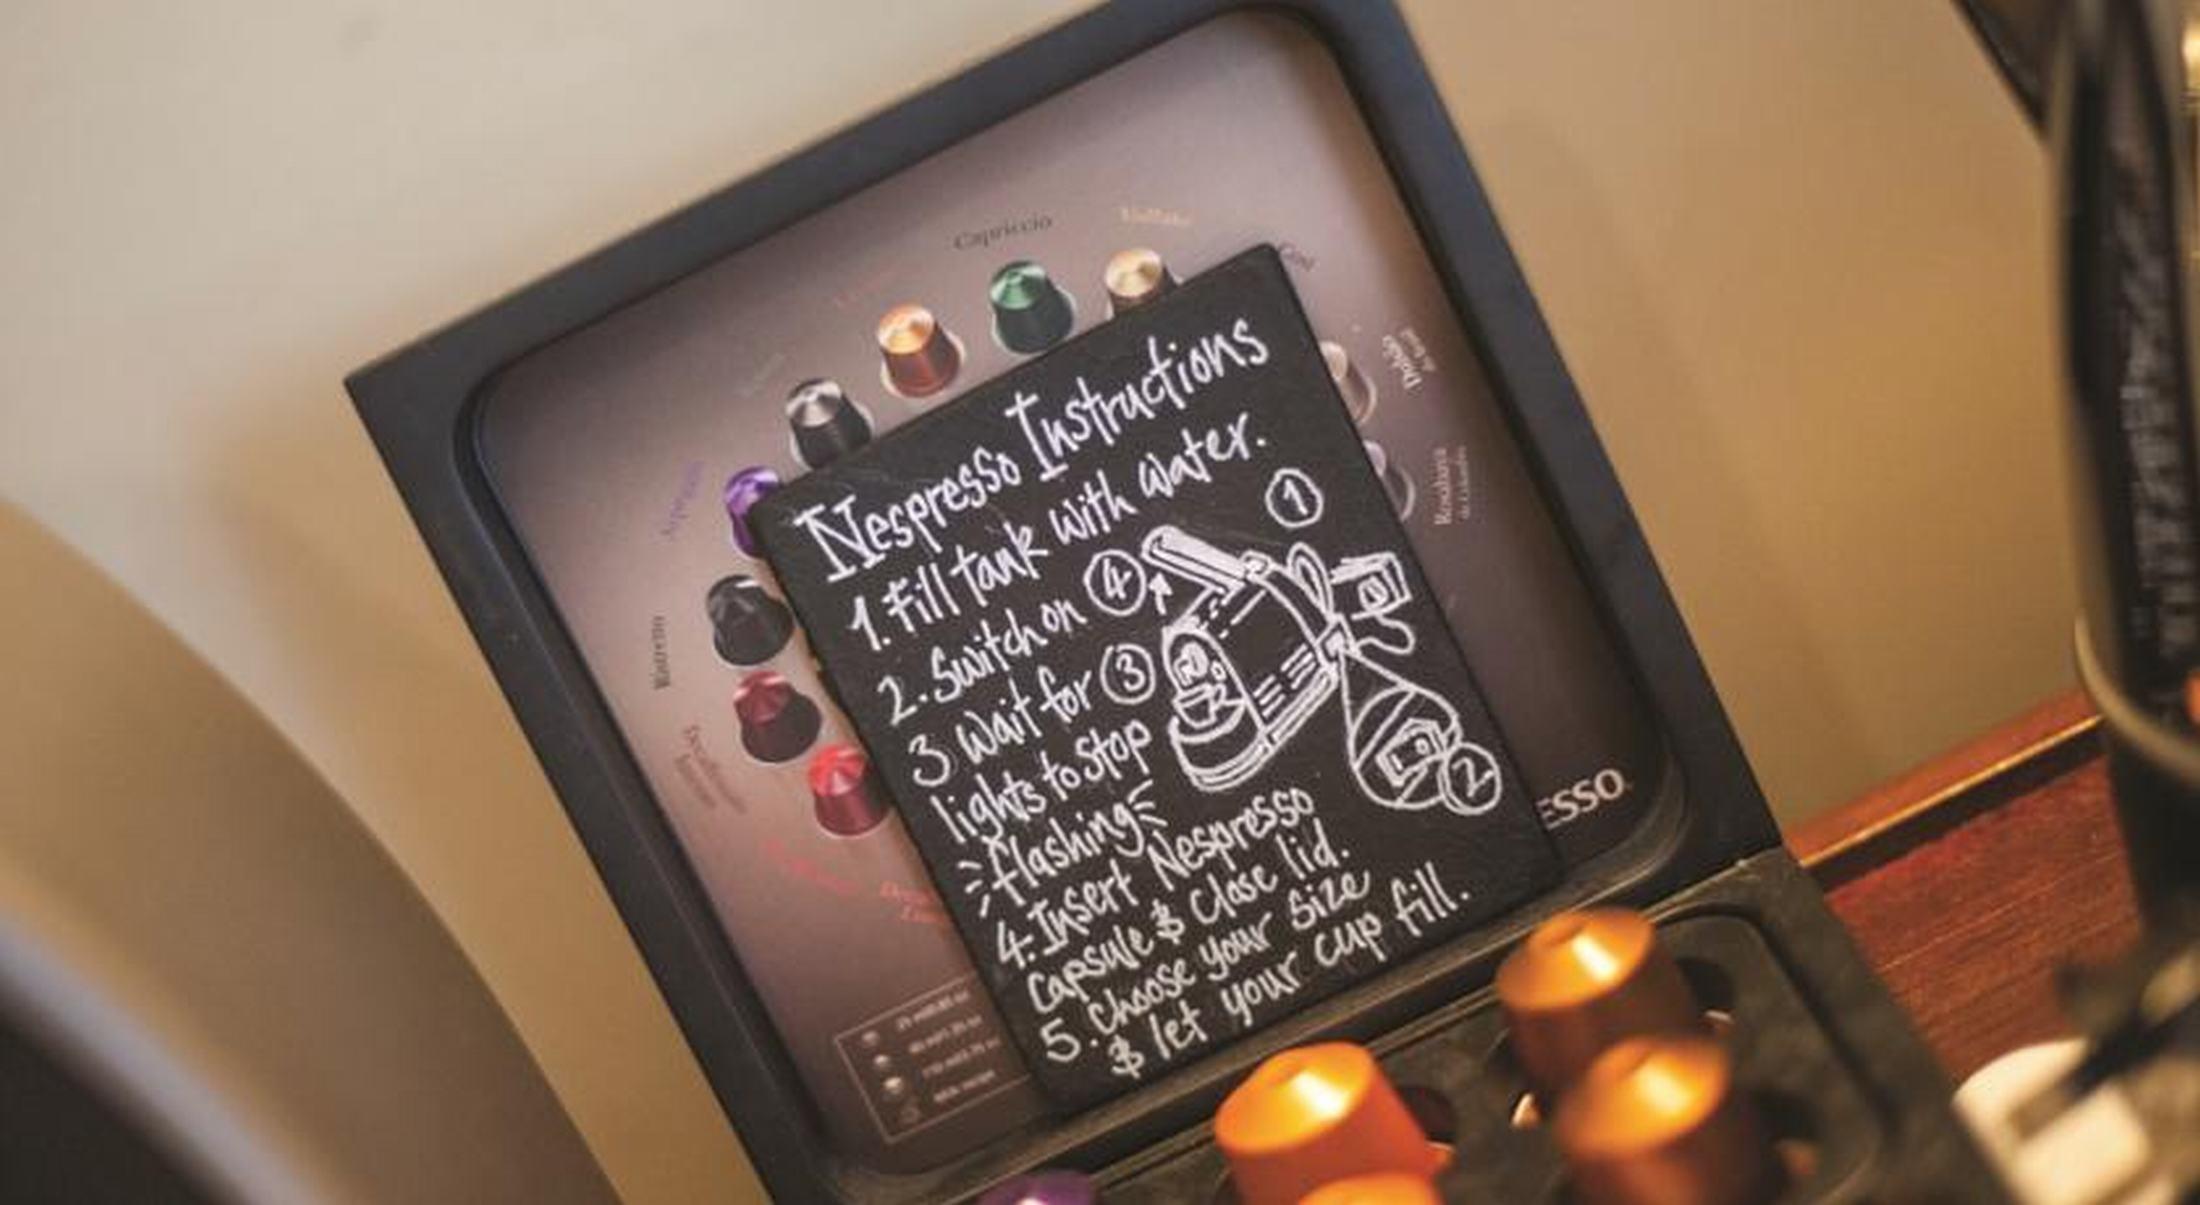 Capriccio
Volluto
Cosi
Dulsão
do Brasil
Rosabaya
de Colombia
Arpeggio
Ristretto
Nespresso Instructions
1. Fill tank with water.
1
2. Switch on
4
3 Wait for
3
lights to stop
flashing
2
4. Insert Nespresso
Capsule & Close lid.
5. Choose your size
& let your cup fill.
ESSO.